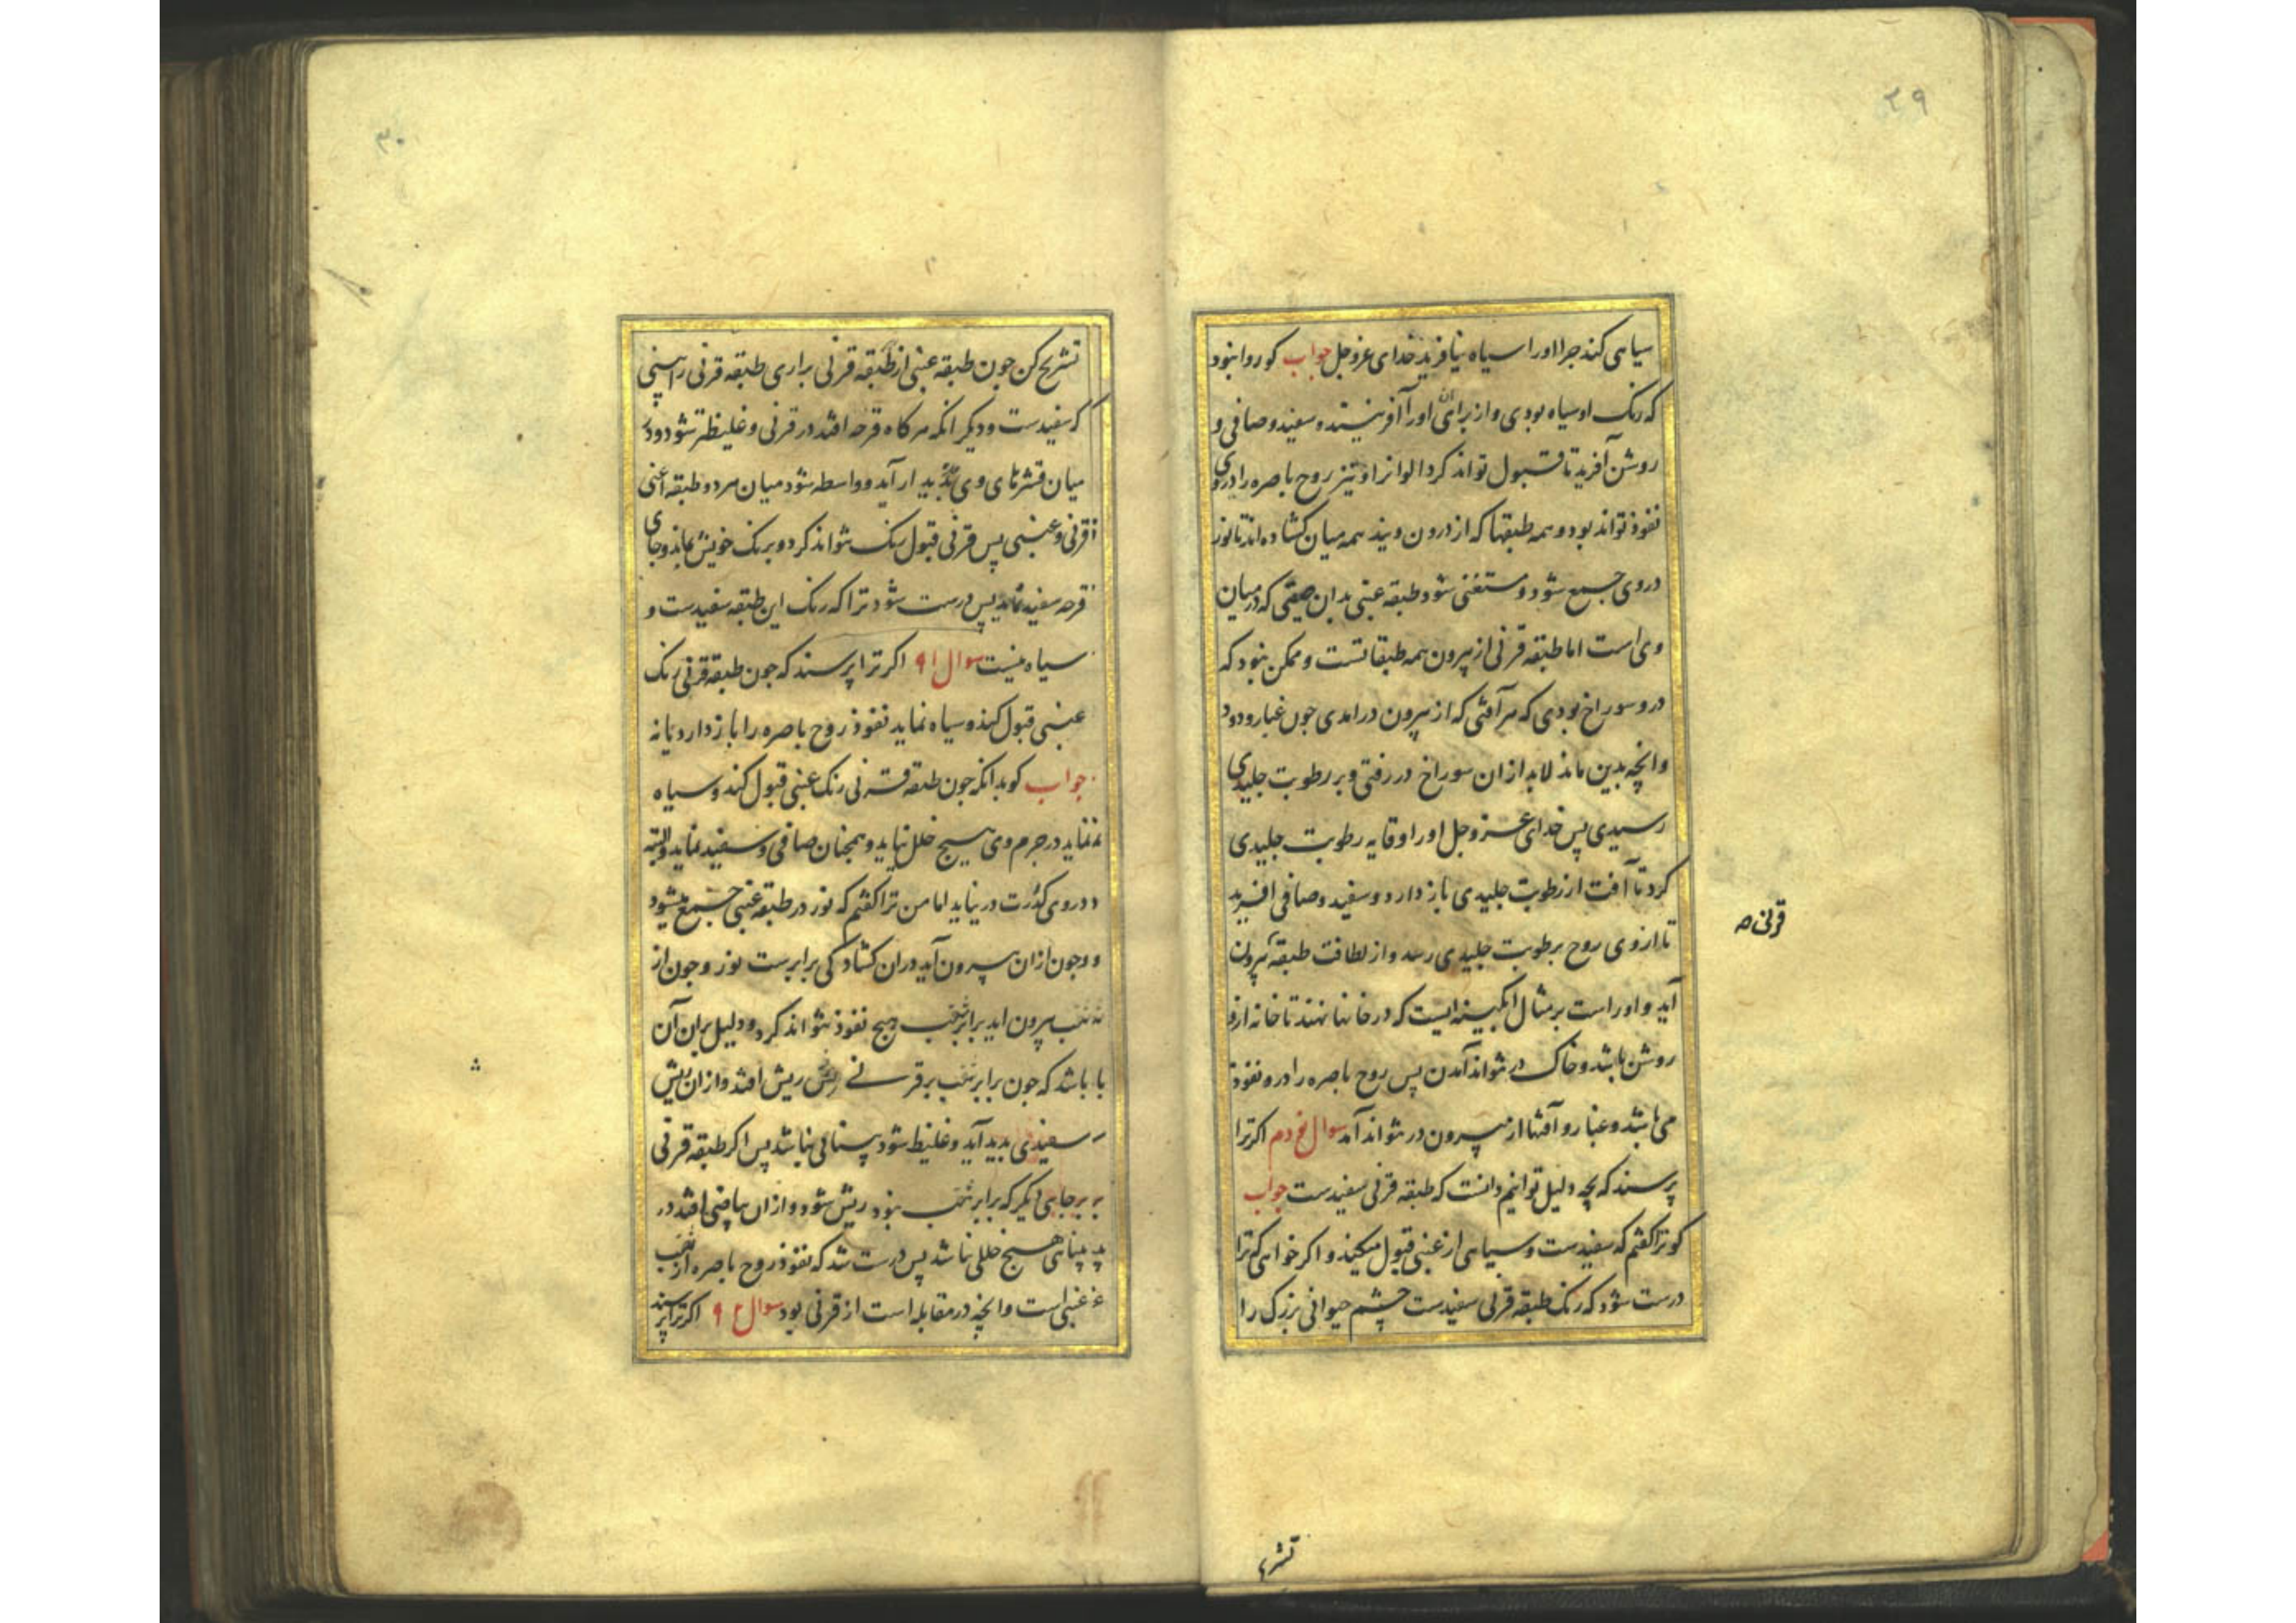 ۲۹
سیاهی کند چرا اورا سیاه نیافرید خدای عزوجل جواب کو روا نبود
که رنک او سیاه بودی واز برای آن اورا آفریننده سفید و صافی و
روشن آفرید تا قبول تواند کرد الوانرا و نیز روح باصره را در وی
نفوذ تواند بود و همه طبقها که از درون ویند همه میان کشاده اند تا نور
در وی جمع شود و مستغنی شود طبقه عنبی بدان صفتی که در میان
وی است اما طبقه قرنی از بیرون همه طبقاتست و ممکن نبود که
درو سوراخ بودی که هر آفتی که از بیرون درامدی جون غبار و دود
وانچه بدین ماند لابد ازان سوراخ در رفتی و بر رطوبت جلیدی
رسیدی پس خدای عزوجل اورا وقایه رطوبت جلیدی
کرد تا آفت از رطوبت جلیدی باز دارد و سفید و صافی افرید
تا از وی روح برطوبت جلیدی رسد و از لطافت طبقه بیرون
قرنی ص
آید و اورا است بر مثال ابکینه ایست که در خانها نهند تا خانه ازو
روشن باشد و خاک در نتواند آمدن پس روح باصره را درو نفوذ
می باشد و غبار و آفتها از بیرون در نتواند آمد سوال نودم اکر ترا
پرسند که بچه دلیل توانیم دانست که طبقه قرنی سفیدست جواب
کو ترا کفتم که سفیدست و سیاهی از عنبی قبول میکند و اکر خواهی که ترا
درست شود که رنک طبقه قرنی سفیدست چشم حیوانی بزرک را
تشریح
۳۰
تشریح کن جون طبقه عنبی از طبقه قرنی براری طبقه قرنی را بینی
که سفیدست و دیکر انکه هر کاه قرحه افتد در قرنی و غلیظتر شود و در
میان قشرهای وی پدید ار آید و واسطه شود میان هر دو طبقه اعنی
قرنی و عنبی پس قرنی قبول رنک نتواند کرد و برنک خویش بماند و جای
قرحه سفید نماید پس درست شود ترا که رنک این طبقه سفیدست و
سیاه نیست سوال ۹۱ اکر ترا پرسند که جون طبقه قرنی رنک
عنبی قبول کند و سیاه نماید نفوذ روح باصره را باز دارد یا نه
جواب کو بدانکه جون طبقه قرنی رنک عنبی قبول کند و سیاه
نماید در جرم وی هیچ خلل نیاید و همچنان صافی و سفید نماید والبته
در وی کدرت در نیاید اما من ترا کفتم که نور در طبقه عنبی جمع میشود
و جون ازان بیرون آید دران کشادکی برابرست نور و جون از
ثقب بیرون اید برابر ثقب هیچ نفوذ نتواند کرد و دلیل بران آن
باشد که جون برابر ثقب بر قرنی ریش افتد و ازان ریش
سفیدی پدید آید و غلیظ شود بینائی نباشد پس اکر طبقه قرنی
بر جایی دیکر که برابر ثقب نبود ریش شود و ازان بیاضی افتد در
بینایی هیچ خللی نباشد پس درست شد که نفوذ روح باصره از ثقب
عنبی است وانچه در مقابله است از قرنی بود سوال ۹۲ اکر ترا پرسند